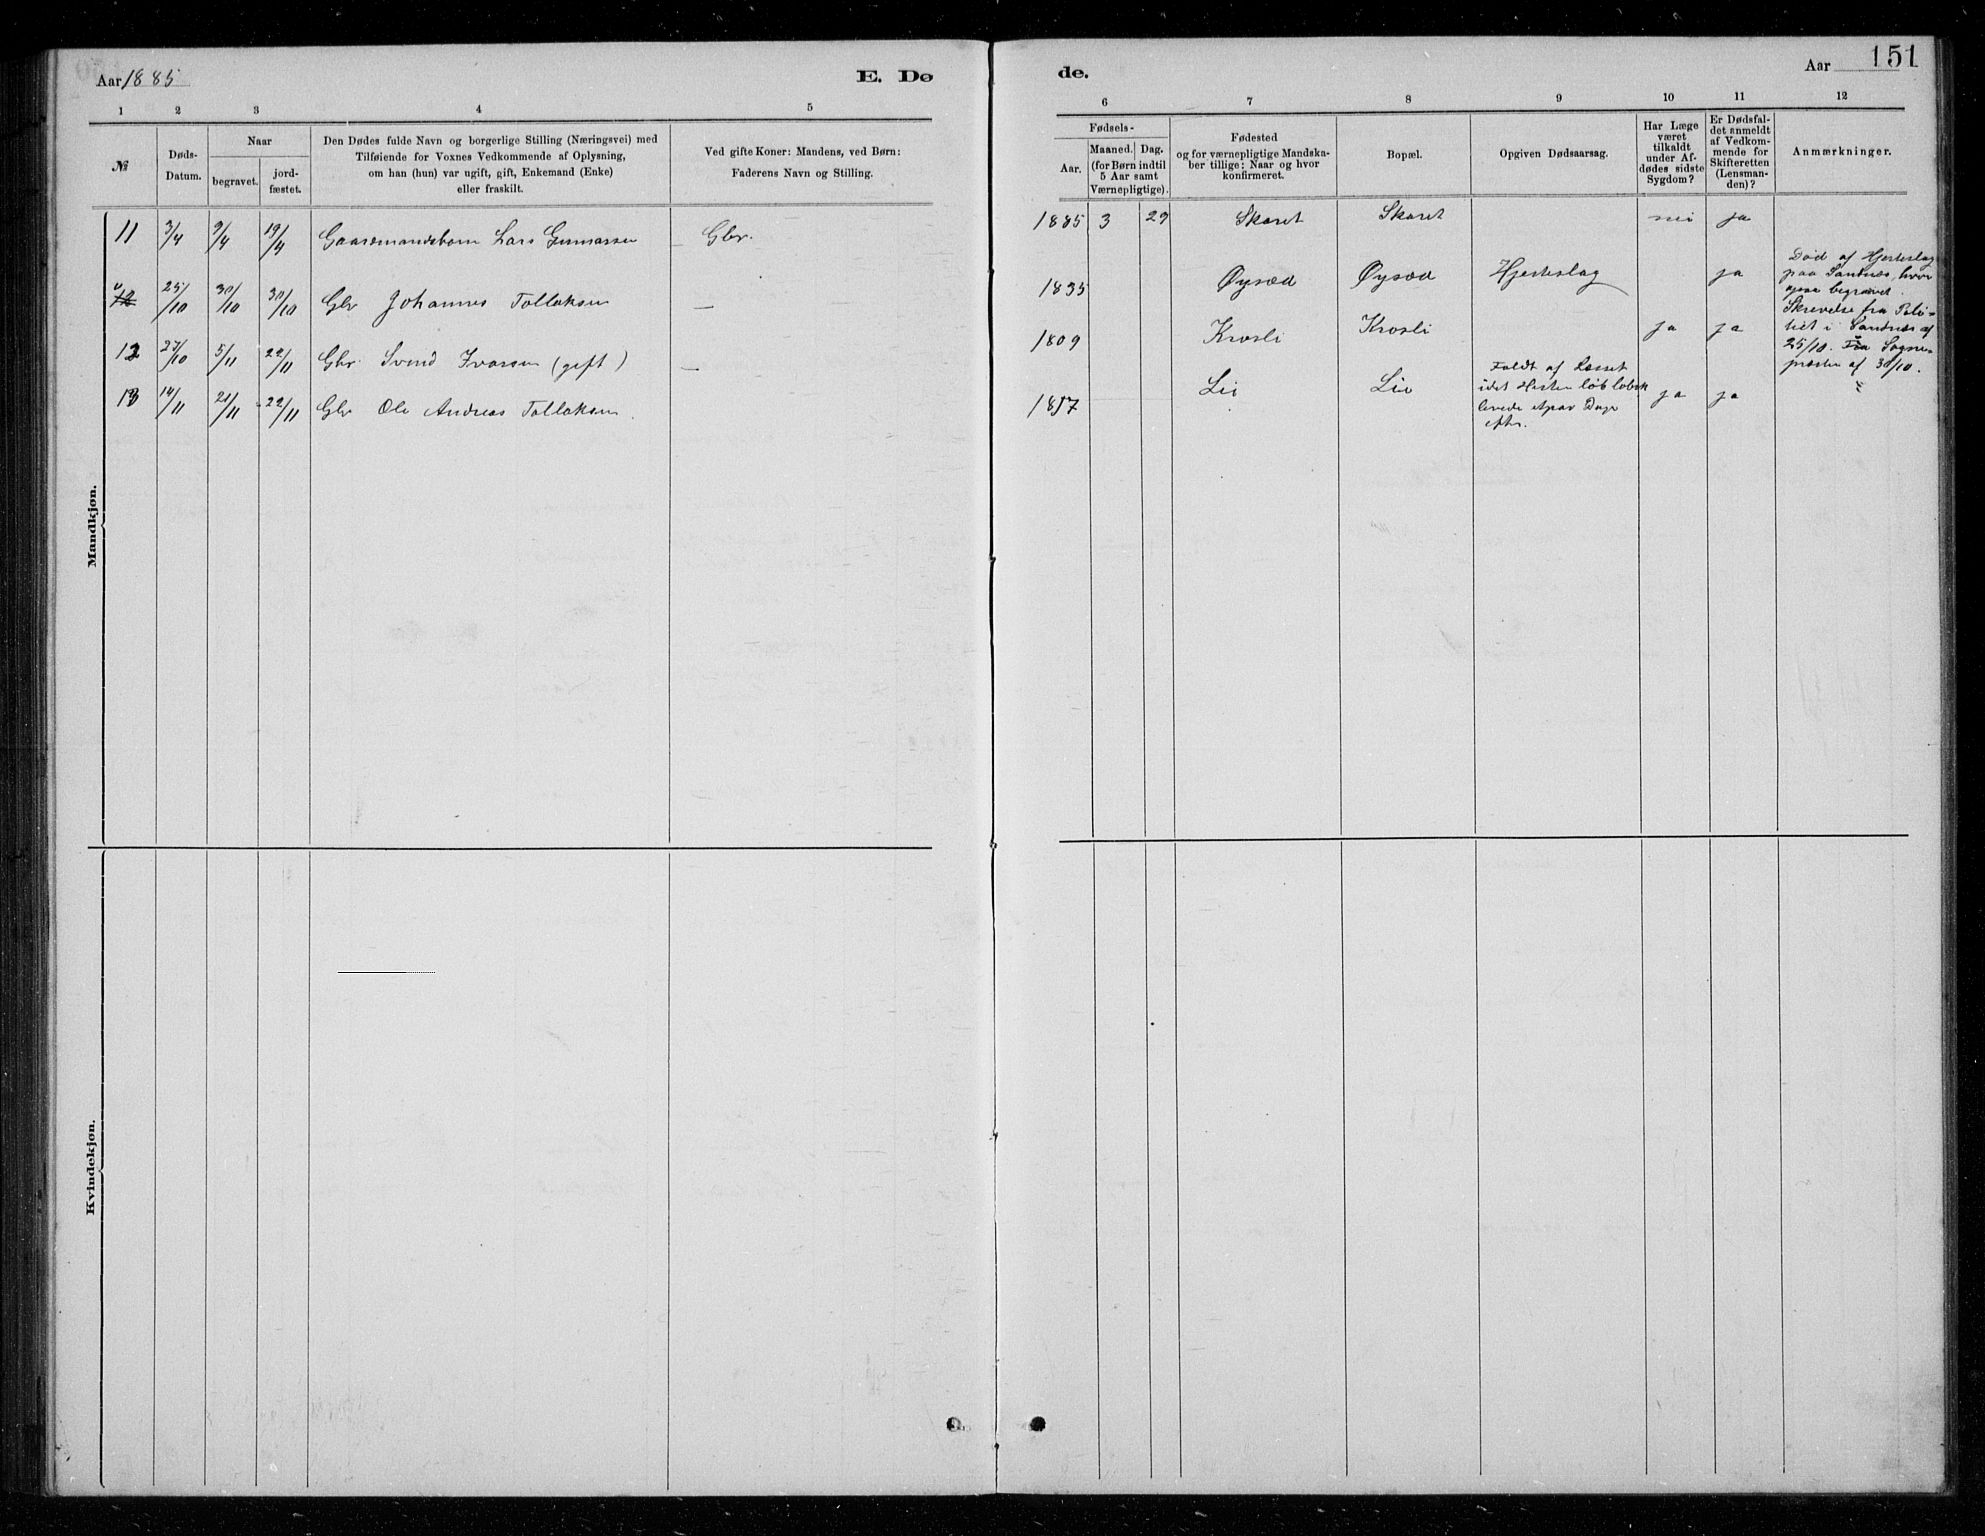 151
Aar 1885
E. Dø
de.
Aar
1 2 3 4 5
6 7 8 9 10 11 12
№
Døds-
Datum.
Naar
begravet.
jord-
fæstet.
Den Dødes fulde Navn og borgerlige Stilling (Næringsvei) med
Tilføiende for Voxnes Vedkommende af Oplysning,
om han (hun) var ugift, gift, Enkemand (Enke)
eller fraskilt.
Ved gifte Koner: Mandens, ved Børn:
Faderens Navn og Stilling.
Fødsels-
Aar.
Maaned. Dag.
(for Børn indtil
5 Aar samt
Værnepligtige).
Fødested
og for værnepligtige Mandska-
ber tillige: Naar og hvor
konfirmeret.
Bopæl.
Opgiven Dødsaarsag.
Har Læge
været
tilkaldt
under Af-
dødes sidste
Sygdom?
Er Dødsfal-
det anmeldt
af Vedkom-
mende for
Skifteretten
(Lensman-
den)?
Anmærkninger.
Mandkjøn.
11 3/4 9/4 19/4 Gaardmandsbarn Lars Gunnarsen Gbr. 1885 3 29 Skaret Skaret nei ja
12 25/10 30/10 30/10 Gbr Johannes Tollaksen — 1835 Øysæd Øysæd Hjerteslag ja
Død af Hjerteslag
paa Sandnæs, hvor
ogsaa begravet.
Skrevelse fra Poli-
tiet i Sandnæs af
25/10. Fra Sogne-
præsten af 30/10.
12 27/10 5/11 22/11 Gbr. Svend Ivarsen (gift) — 1809 Krosli Krosli ja ja
13 14/11 21/11 22/11 Gbr Ole Andreas Tollaksen. 1817 Lii Lii
Faldt af Læsset
idet Hesten løb løbsk
levede et par Dage
efter.
ja ja
Kvindekjøn.